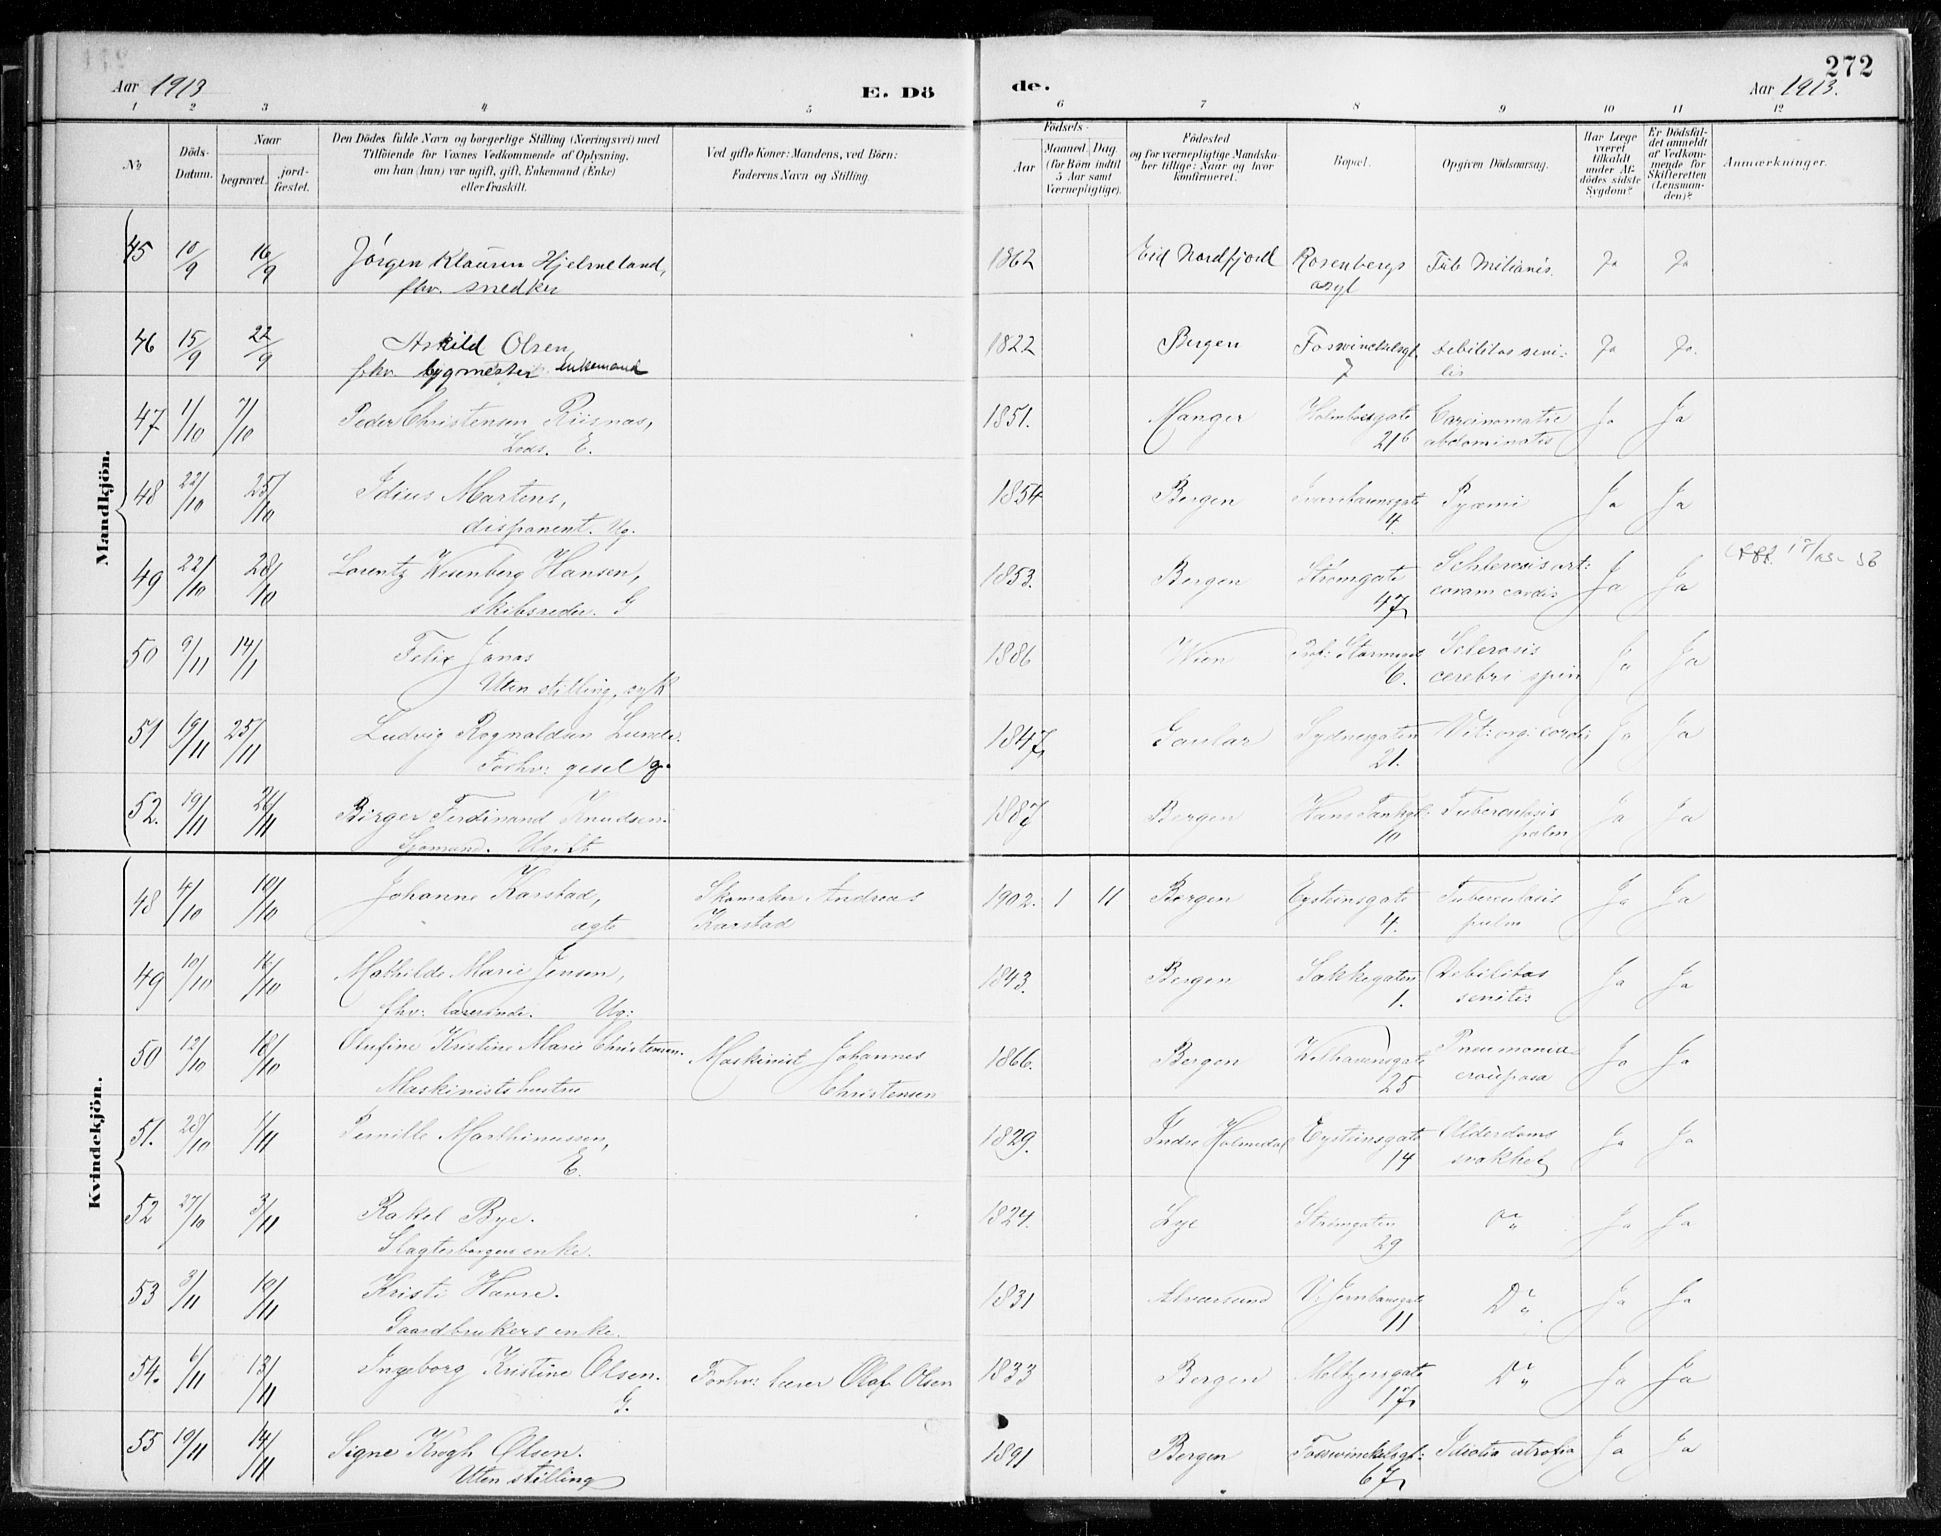 272
Aar 1913 E. Dö de. Aar 1913.
1 2 3 4 5 6 7 8 9 10 11 12
№
Döds-Datum.
Naar
begravet.
jord-fæstet.
Den Dödes fulde Navn og borgerlige Stilling (Næringsvei) med
Tilföiende for Voxnes Vedkommende af Oplysning,
om han (hun) var ugift, gift, Enkemand (Enke)
eller fraskilt.
Ved gifte Koner: Mandens, ved Börn:
Faderens Navn og Stilling.
Födsels-
Aar
Maaned. Dag.
(for Börn indtil
5 Aar samt
Værnepligtige).
Födested
og for værnepligtige Mandska-
ber tillige: Naar og hvor
konfirmeret.
Bopæl.
Opgiven Dödsaarsag.
Har Læge
været
tilkaldt
under Af-
dödes sidste
Sygdom?
Er Dödsfal-
det anmeldt
af Vedkom-
mende for
Skifteretten
(Lensman-
den)?
Anmærkninger.
Mandkjön.
45 10/9 16/9 Jørgen Klausen Hjelmeland, 1862 Eid Nordfjord Rosenbergs Tub. Miliaris. Ja Ja
fhv. snedker asyl
46 15/9 22/9 Askild Olsen, 1822 Bergen Foswinckelsgt. debilitas seni- Ja Ja.
fhv. bygmester enkemand 7 lis
47 1/10 7/10 Peder Christensen Riisnæs, 1851. Manger Holmboesgate Carcinomatie Ja Ja
Lods. E. 21b abdominalis
48 22/10 25/10 Idius Martens, 1854 Bergen Ivar Aasensgate Pyæmi Ja Ja
disponent. Ug. 4.
49 22/10 28/10 Lorentz Wesenberg Hansen, 1853. Bergen Strømgate Schlerosis art: Ja Ja
skibsreder. G 47 coram cordis
50 9/11 14/1 Felix Jonas 1886 Wien Prof: Storms gt Sclerosis Ja Ja
Uten stilling, sysk 6. cerebri spin
51 19/11 25/11 Ludvig Rognaldsen Lunde. 1847 Gaular Sydnesgaten Vit: org: cordis Ja Ja
Forhv: gesel g. 21.
52. 19/11 26/11 Birger Ferdinand Knudsen. 1887 Bergen Hans Tanksgt. Tuberculosis Ja Ja
Sjømand. Ugift 10 pulm
Kvindekjön.
48 4/10 10/10 Johanne Karstad, Skomaker Andreas 1902. 1 11 Bergen Eysteinsgate Tuberculosis Ja Ja
ægte Karstad 4. pulm
49 10/10 16/10 Mathilde Marie Jensen, 1843. Bergen Sækkegaten Debilitas Ja Ja
fhv: lærerinde. Ug: 1. senilis
50 12/10 18/10 Olufine Kristine Marie Christensen. Maskinist Johannes 1866. Bergen Welhavensgate Pneumonia Ja Ja
Maskinists hustru Christensen 25 croupøsa
51. 28/10 1/11 Pernille Marthinussen, 1829. Indre Holmedal Eysteinsgate Alderdoms Ja Ja
E. 14 svakhet
52 27/10 3/11 Rakel Bye. 1824. Lye Strømgaten Do " Ja Ja
Slagterborgers enke. 29
53 3/11 10/11 Kristi Havre. 1831 Alversund V. Jernbanegate Do " Ja Ja
Gaardbrukers enke. 11
54. 6/11 13/11 Ingeborg Kristine Olsen. Forhv: lærer Olaf Olsen 1833 Bergen Meltzersgate Do " Ja Ja
G. 17
55 10/11 14/11 Signe Krogh Olsen. 1891 Bergen Fosswinckelsgt: Idiotia atrofia Ja Ja
Uten stilling 67